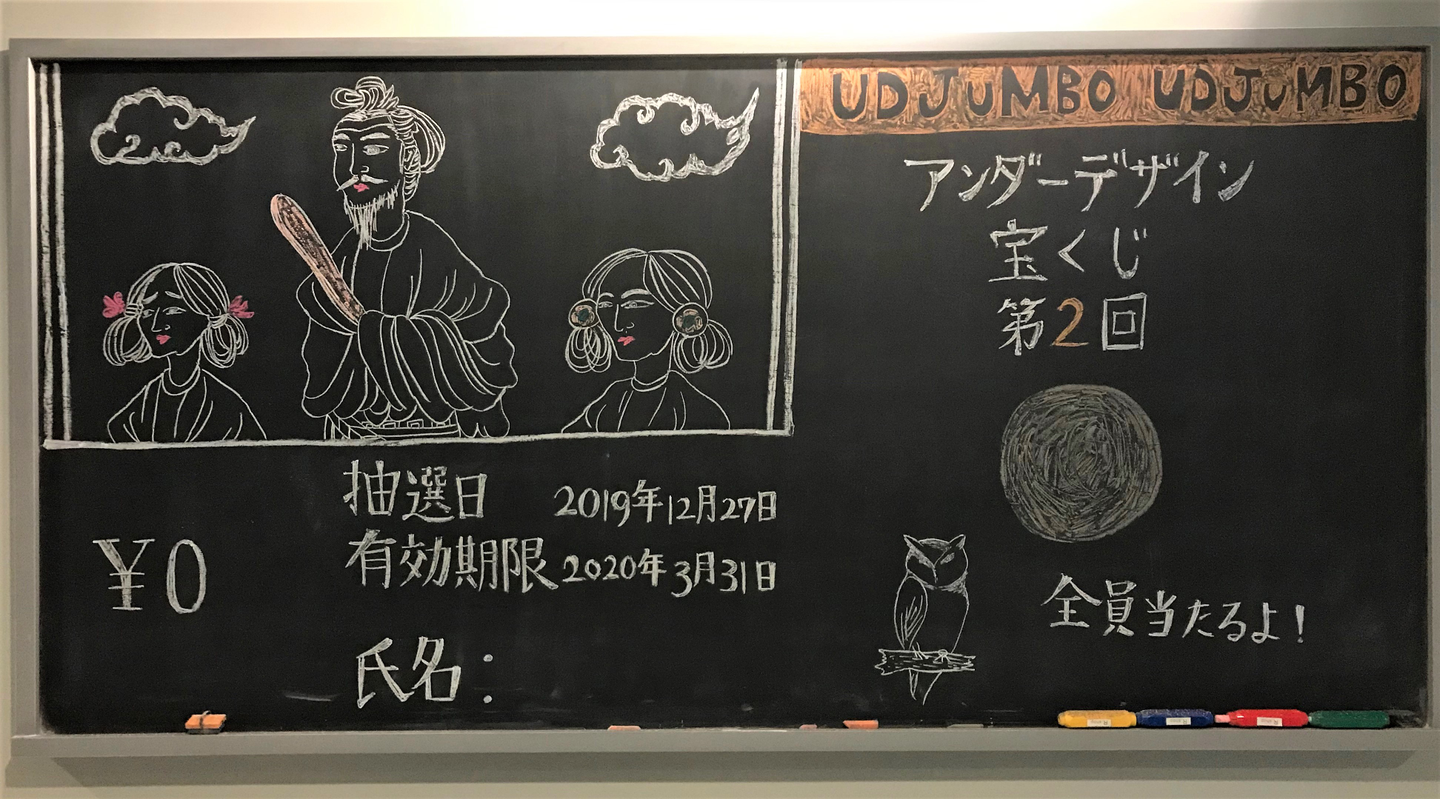 UDJUMBO UDJUMBO
アンダーデザイン
宝くじ
第2回
抽選日 2019年12月27日
有効期限 2020年3月31日
¥0
氏名:
全員当たるよ!